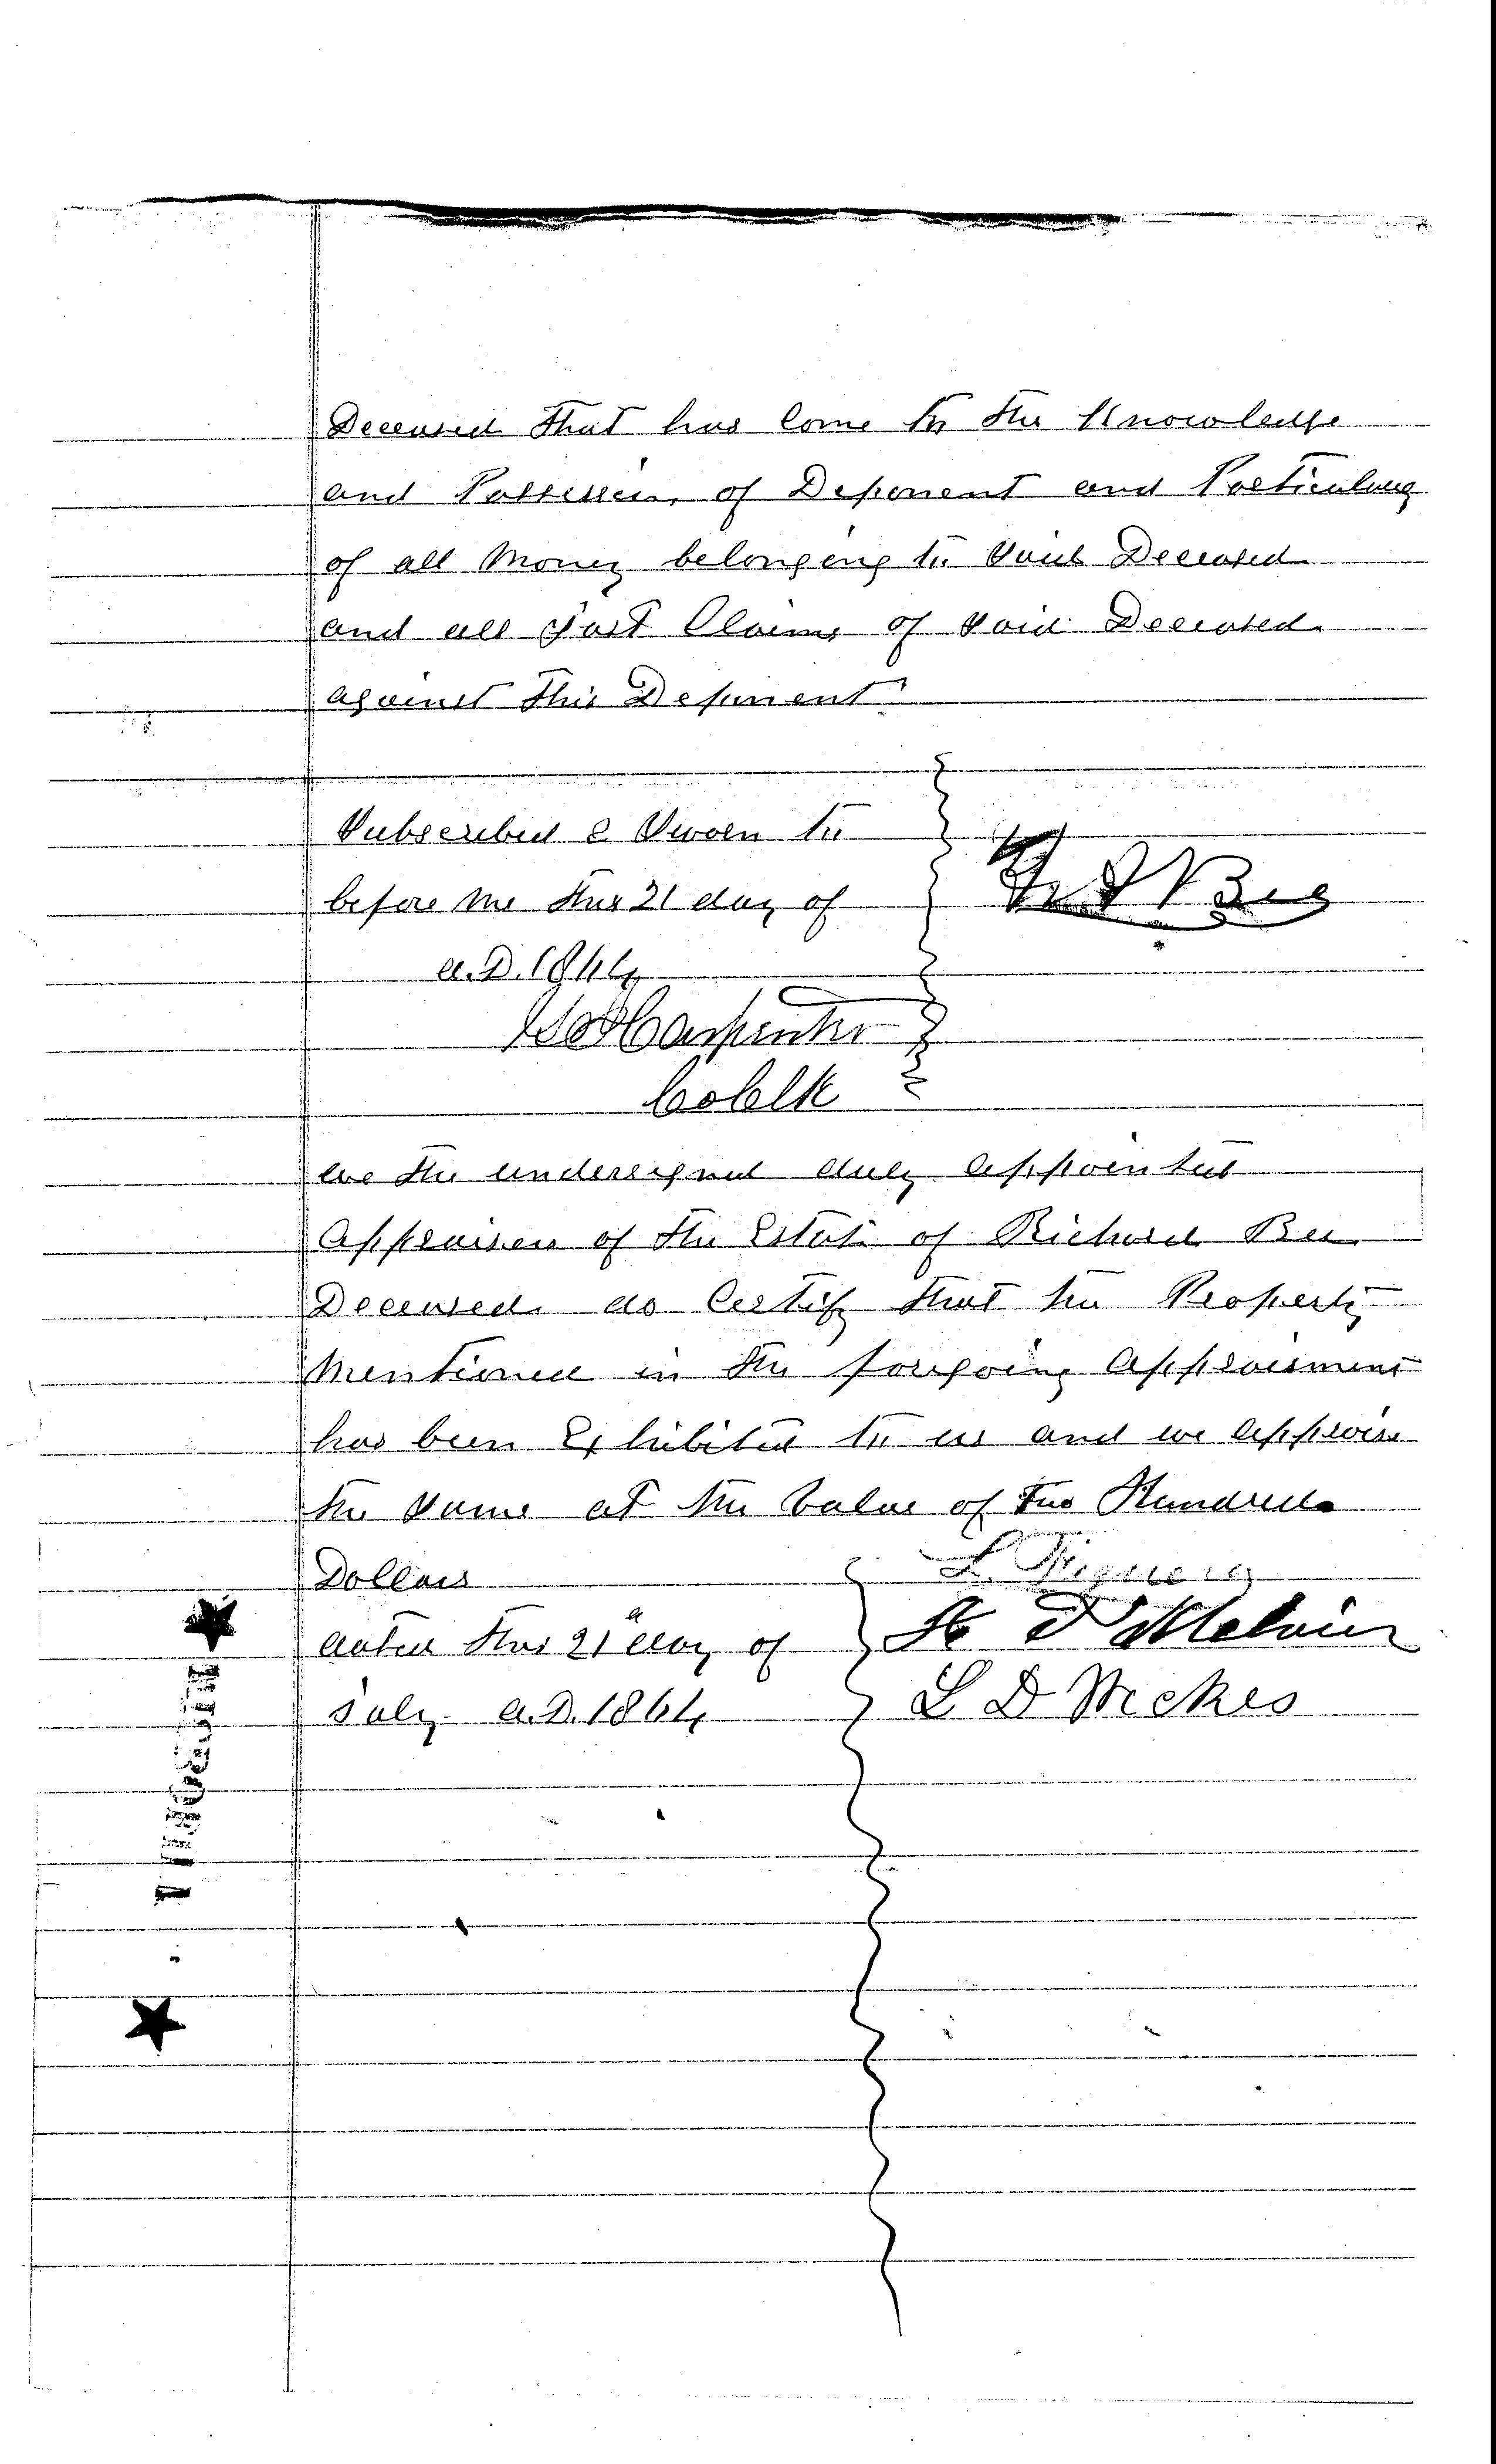 Deceased that has Come to the Knowledge
and Possession of Deponent and Particulars
of all Money belonging to Said Deceased
and all Just Claims of Said Deceased
against this Deponent
Subscribed & Sworn to
before me this 21 day of
A.D. 1864
Carpenter
Co Clk
We the undersigned duly appointed
Appraisers of the Estate of Richard Bee
Deceased do Certify that the Property
Mentioned in the foregoing Appraisment
has been Exhibited to us and we appraise
the Same at the Value of Two Hundred
Dollars
dated this 21 day of
July A.D. 1864
L D Mekes